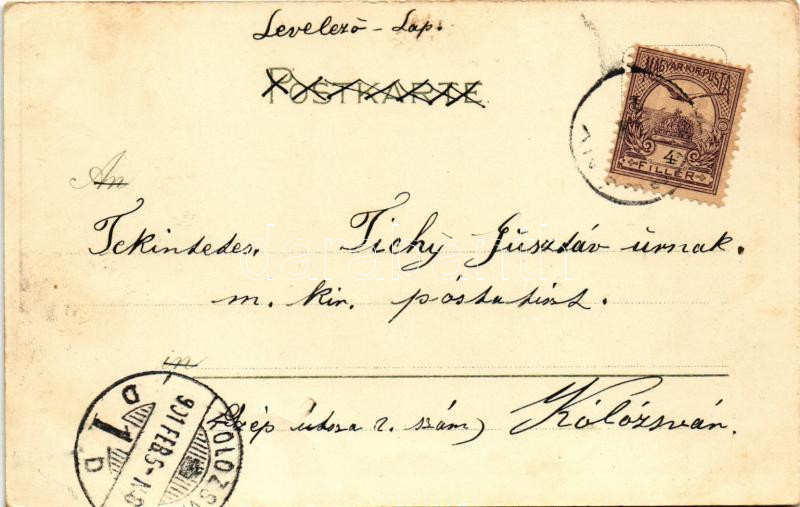 Levelező - Lap.
POSTKARTE
MAGYAR KIR. POSTA
4
FILLÉR
An
Tekintetes. Tichy Gusztáv úrnak.
m. kir. póstatiszt.
in
(Szép utsza 2. szám) Kolózsvár.
KOLOZSV
901 FEB 5
D 1 D